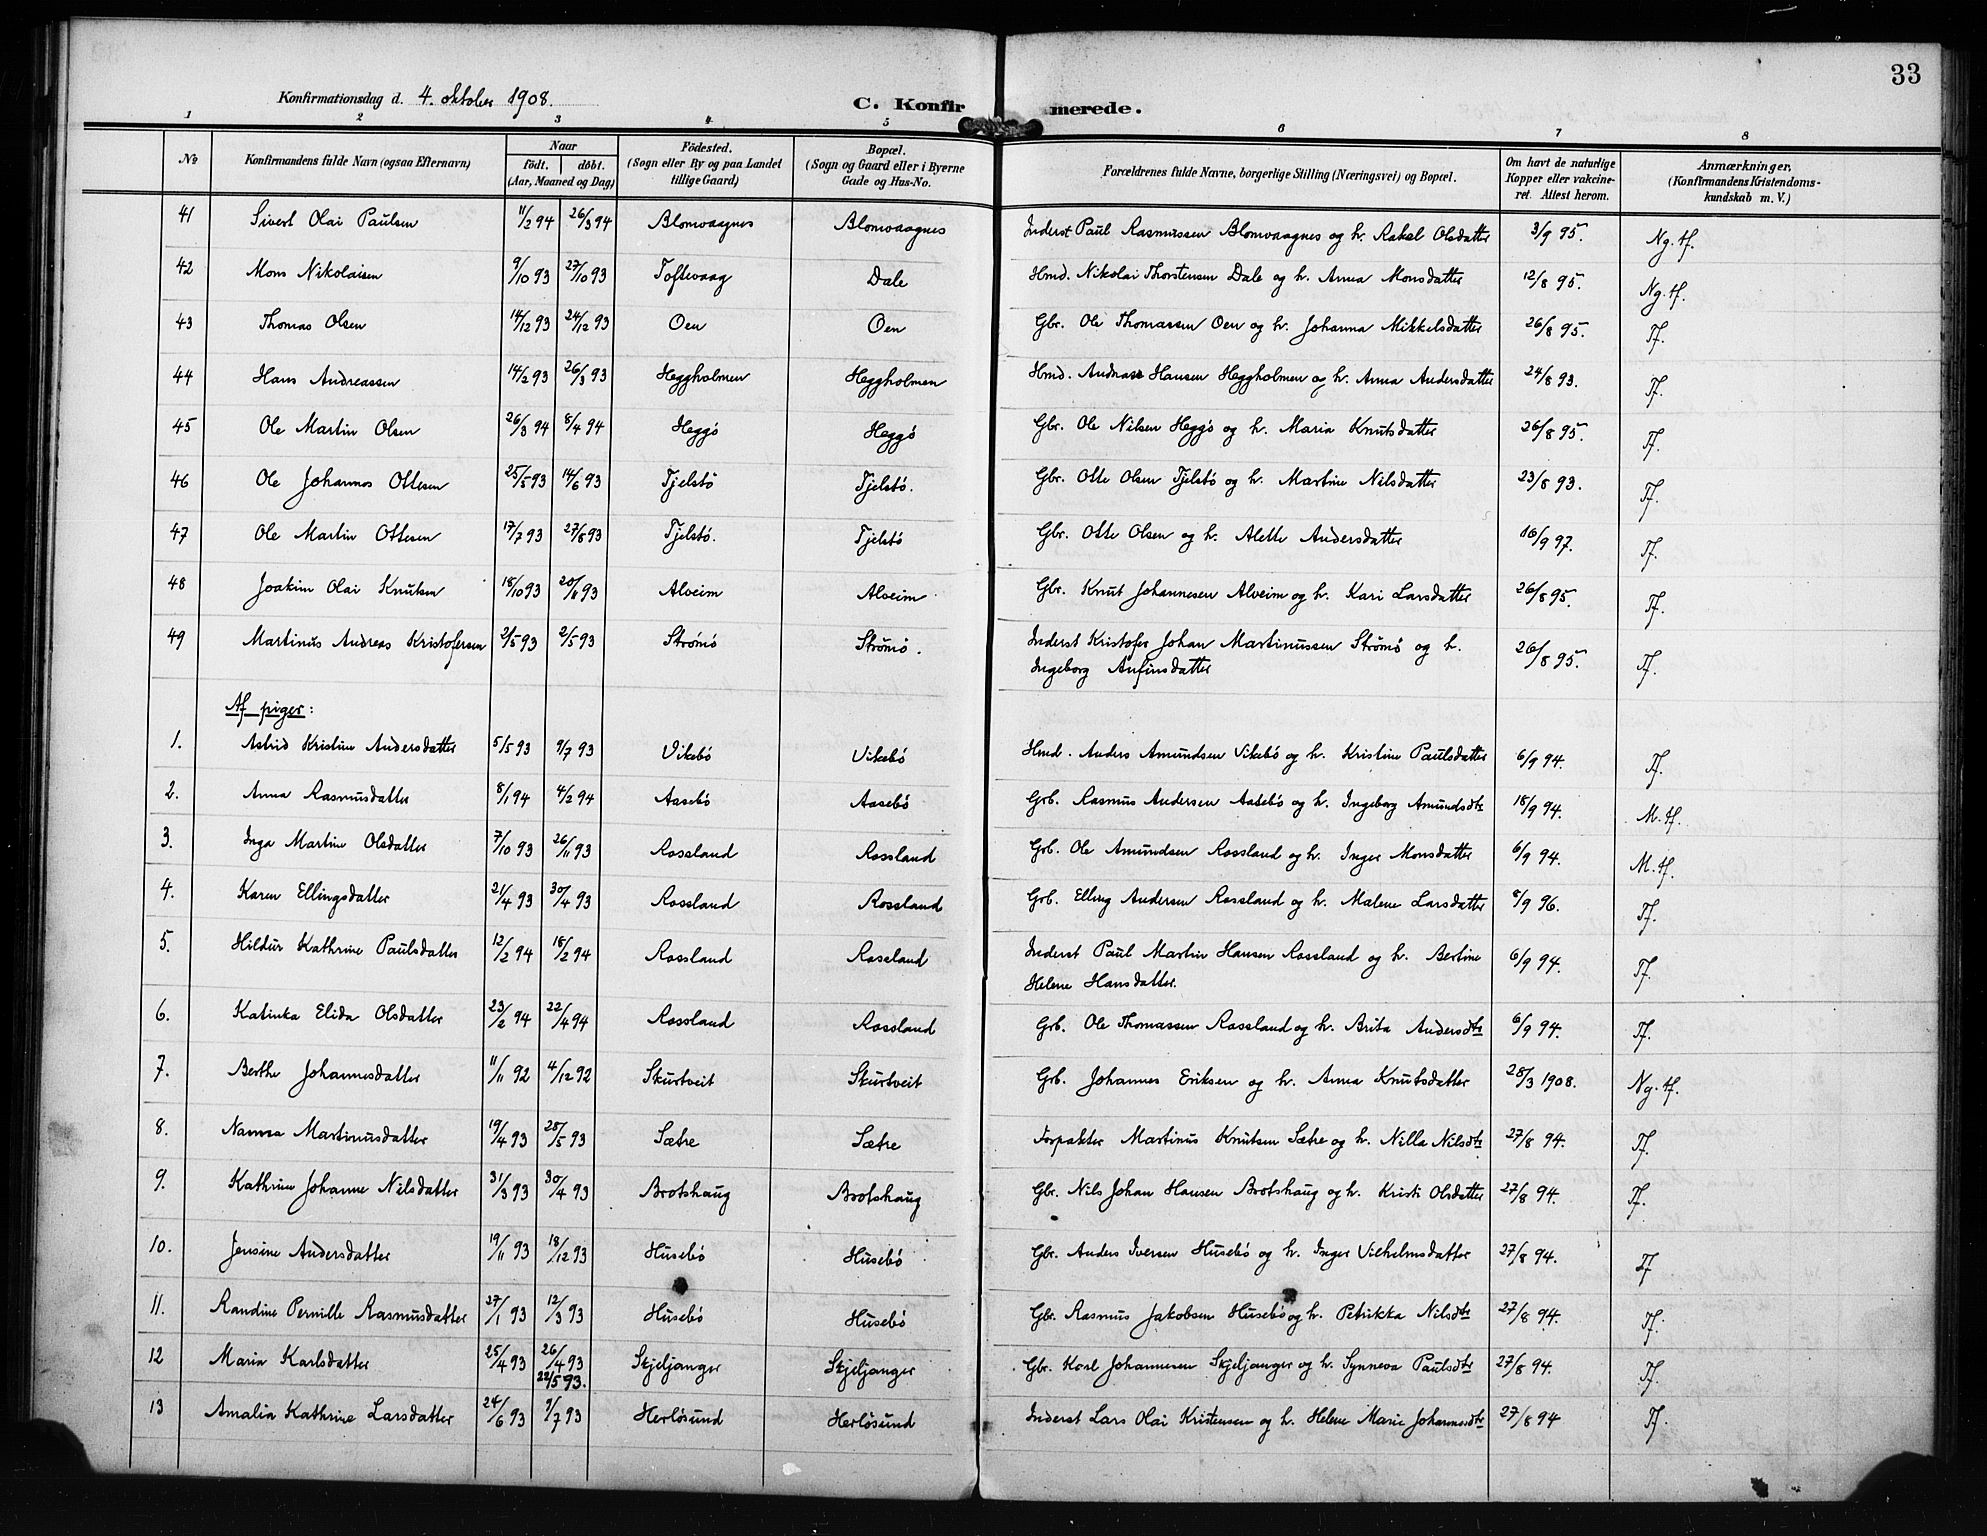 33
Konfirmationsdag d. 4. oktober 1908.
C. Konfirmerede.
1 2 3 4 5 6 7 8
No Konfirmandens fulde Navn (ogsaa Efternavn) Naar födt. döbt. (Aar, Maaned og Dag) Födested. (Sogn eller By og paa Landet tillige Gaard) Bopæl. (Sogn og Gaard eller i Byerne Gade og Hus-No. Forældrenes fulde Navne, borgerlige Stilling (Næringsvei) og Bopæl. Om havt de naturlige Kopper eller vakcineret. Attest herom. Anmærkninger, (Konfirmandens Kristendomskundskab m. V.)
41 Sivert Olai Paulsen 11/2 94 26/3 94 Blomvaagnes Blomvaagnes Inderst Paul Rasmussen Blomvaagnes og h. Rakel Olsdatter 3/9 95. Ng. tf.
42 Mons Nikolaisen 9/10 93 27/10 93 Toftevaag Dale Hmd. Nikolai Thorstensen Dale og h. Anna Monsdatter 12/8 95. Ng. tf.
43 Thomas Olsen 14/12 93 24/12 93 Oen Oen Gbr. Ole Thomassen Oen og h. Johanna Mikkelsdatter 26/8 95. Tf.
44 Hans Andreassen 14/2 93 26/3 93 Heggholmen Heggholmen Hmd. Andreas Hansen Heggholmen og h. Anna Andersdatter 24/8 93. Tf.
45 Ole Martin Olsen 26/3 94 8/4 94 Heggö Heggö Gbr. Ole Nilsen Heggö og h. Maria Knutsdatter 26/8 95. Tf.
46 Ole Johannes Ottesen 25/5 93 14/6 93 Tjelstö Tjelstö. Gbr. Otte Olsen Tjelstö og h. Martine Nilsdatter 23/8 93. Tf.
47 Ole Martin Ottesen 17/7 93 27/8 93 Tjelstö. Tjelstö Gbr. Otte Olsen og h. Alette Andersdatter 16/9 97. Tf.
48 Joakim Olai Knutsen 18/10 93 20/11 93 Alveim Alveim Gbr. Knut Johannesen Alveim og h. Kari Larsdatter 26/8 95. Tf.
49 Martinus Andreas Kristofersen 2/5 93 2/5 93 Strömö Strömö. Inderst Kristofer Johan Martinussen Strömö og h. 26/8 95. Tf.
Ingeborg Anfinsdatter
Af piger:
1. Astrid Kristine Andersdatter 5/5 93 9/7 93 Vikebö Vikebö Hmd. Anders Amundsen Vikebö og h. Kristine Paulsdatter 6/9 94. Tf.
2. Anna Rasmusdatter 8/1 94 4/2 94 Aasebö Aasebö Grb. Rasmus Andersen Aasebö og h. Ingeborg Amundsdtr 18/9 94. M. tf.
3. Inga Martine Olsdatter 7/10 93 26/11 93 Rossland Rossland Grb. Ole Amundsen Rossland og h. Inger Monsdatter 6/9 94. M. tf.
4. Karen Ellingsdatter 21/4 93 30/4 93 Rossland Rossland Grb. Elling Andersen Rossland og h. Malene Larsdatter 8/9 96. Tf.
5. Hildur Kathrine Paulsdatter 12/2 94 18/2 94 Rossland Rossland Inderst Paul Martin Hansen Rossland og h. Bertine 6/9 94. Tf.
Helene Hansdatter.
6. Katinka Elida Olsdatter 23/2 94 22/4 94 Rossland Rossland Grb. Ole Thomassen Rossland og h. Brita Andersdtr 6/9 94. Tf.
7. Berthe Johannesdatter 11/11 92 4/12 92 Skurtveit Skurtveit Grb. Johannes Eriksen og h. Anna Knutsdatter 28/3 1908. Ng. tf.
8. Nanna Martinusdatter 19/4 93 28/5 93 Sætre Sætre Forpakter Martinus Knutsen Sætre og h. Nilla Nilsdtr 27/8 94. Tf.
9. Kathrine Johanne Nilsdatter 31/3 93 30/4 93 Brotshaug Brotshaug Gbr. Nils Johan Hansen Brotshaug og h. Kristi Olsdatter 27/8 94. Tf.
10. Jensine Andersdatter 19/11 93 18/12 93 Husebö Husebö Gbr. Anders Iversen Husebö og h. Inger Vilhelmsdatter 27/8 94. Tf
11. Randine Pernille Rasmusdatter 27/1 93 12/3 93 Husebö Husebö Gbr. Rasmus Jakobsen Husebö og h. Petrikka Nilsdtr 27/8 94. Tf.
12 Maria Karlsdatter 25/4 93 26/4 93 Skjeljanger Skjeljanger Gbr. Karl Johannesen Skjeljanger og h. Synneva Paulsdtr 27/8 94. Tf.
22/5 93.
13 Amalia Kathrine Larsdatter 24/6 93 9/7 93 Herlösund Herlösund Inderst Lars Olai Kristensen og h. Helene Marie Johannesdtr 27/8 94 Tf.